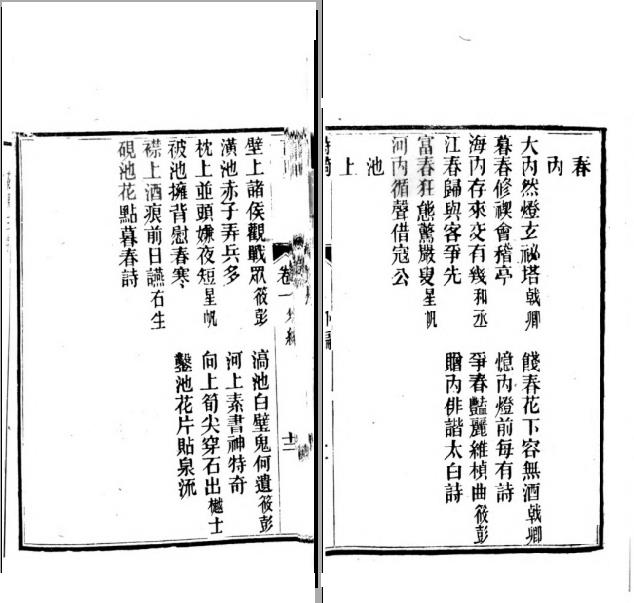 春
內
大內然燈玄祕塔戟卿
餞春花下容無酒戟卿
暮春修禊會稽亭
憶內燈前每有詩
海內存來交有幾和丞
爭春豔麗維楨曲筱彭
江春歸與客爭先
贈內俳諧太白詩
富春狂態驚嚴叟星帆
河內循聲借寇公
池
上
卷一
十二
壁上諸侯觀戰眾筱彭
滈池白璧鬼何遺筱彭
潢池赤子弄兵多
河上素書神特奇
枕上並頭嫌夜短星帆
向上筍尖穿石出樾士
被池擁背慰春寒
鑿池花片貼泉流
襟上酒痕前日讌右生
硯池花點暮春詩